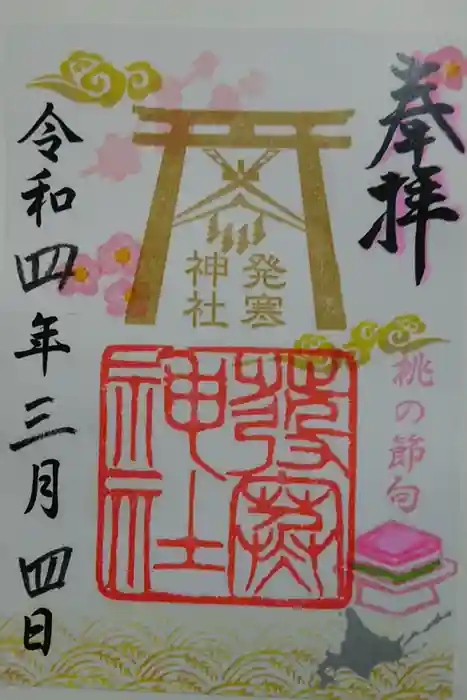 奉拝
桃の節句
発寒
神社
発寒
神社
令和四年三月四日